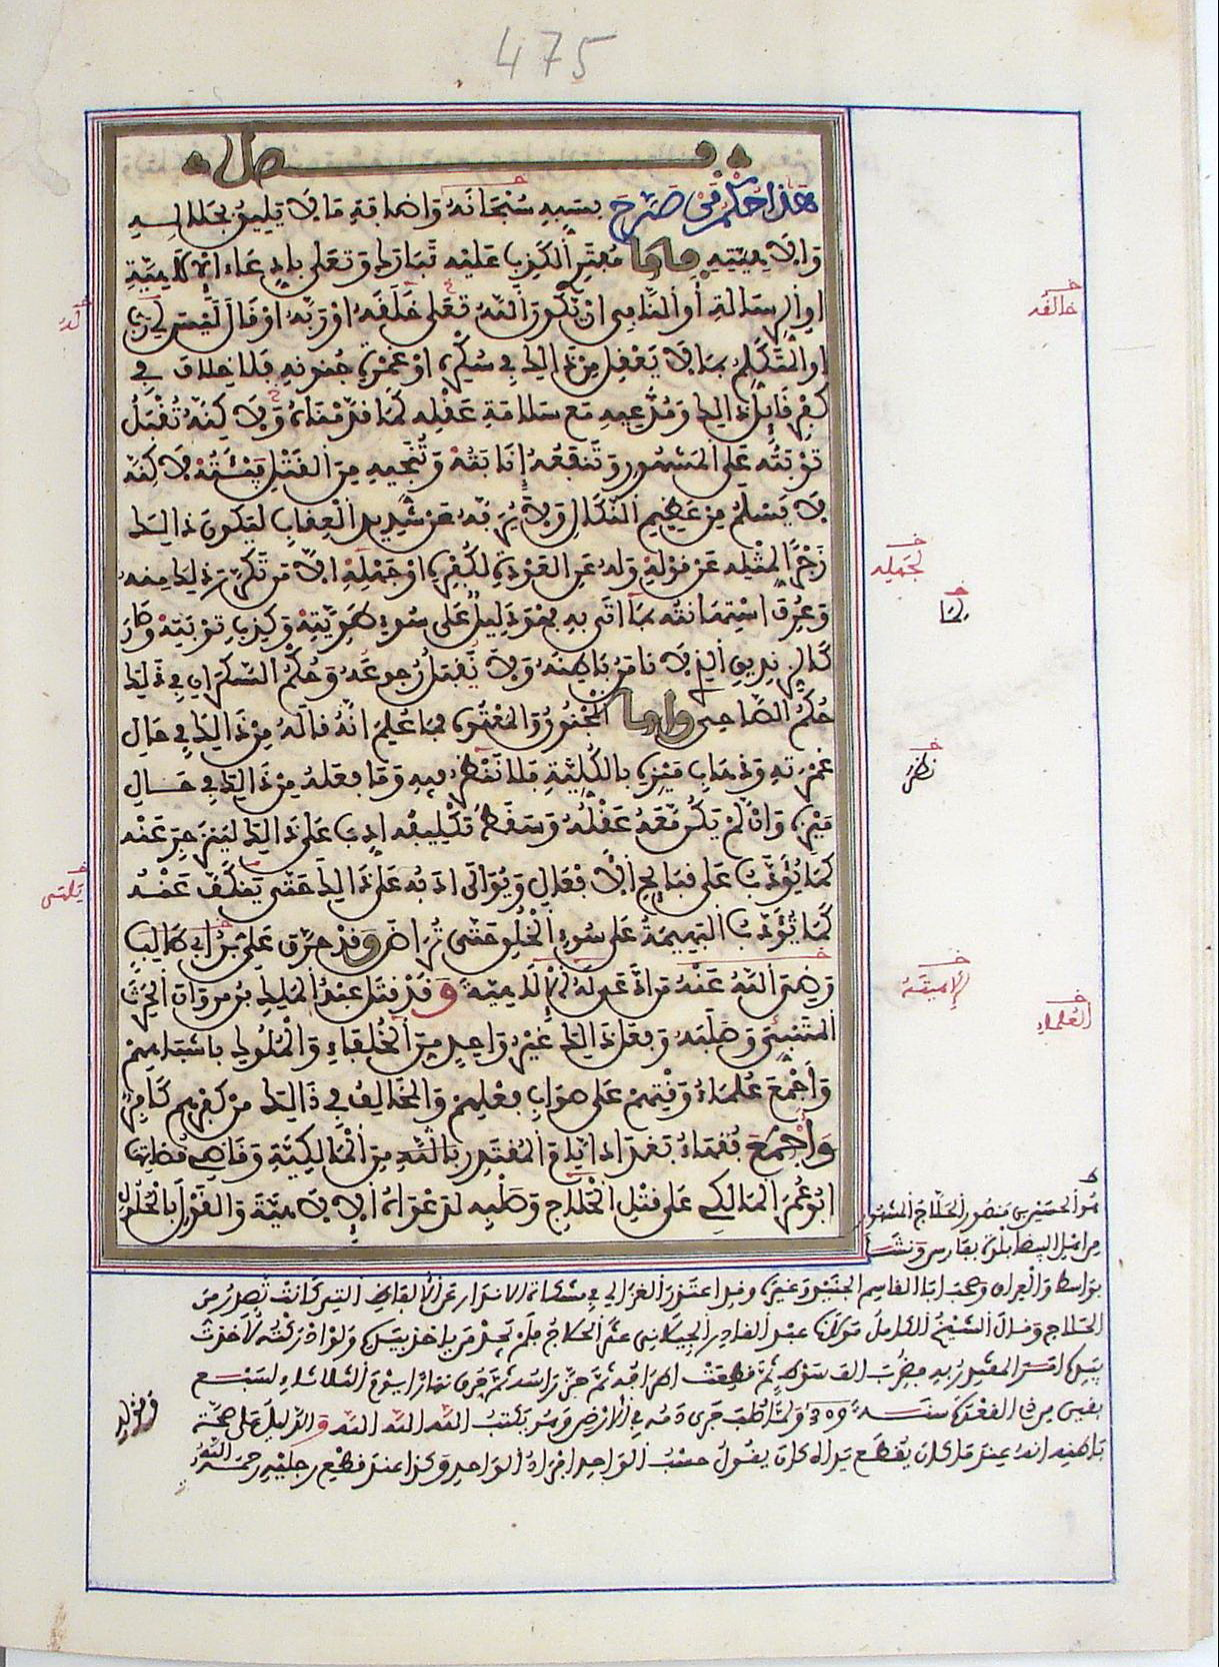 475
فصل
هذا حكم من صرح بسبه سبحانه واضافة ما لا يليق بجلاله
والاهيته فاما مفتر الكذب عليه تبارك وتعلى بادعاء الالاهية
او الرسالة او النافي ان تكون الله تعلى خلقه او ربه او قال ليس لي رب
او المتكلم بما لا يعقل من ذالك في سكره او غمرة جنونه فلا خلاف في
كفر قايل ذالك ومدعيه مع سلامة عقله كما قدمناه ولاكنه تقبل
توبته على المشهور وتنفعه إنابته وتنجيه من القتل فيئته لاكنه
لا يسلم من عظيم النكال ولا يرفه عن شديد العقاب ليكون ذالك
زجرا لمثله عن قوله وله عن العودة لكفره او جهله الا من تكرر ذلك منه
وعرف استهانته بما اتى به فهو دليل على سوء طويته وكذب توبته وكان
كالزنديق الذي لا نامن باطنه ولا يقبل رجوعه وحكم السكران في ذلك
حكم الصاحي واما المجنون والمعتوه فما علم انه قاله من ذالك في حال
غمرته وذهاب ميزه بالكلية فلا نظر فيه وما فعله من ذالك في حال
ميزه وان لم يكن معه عقله وسقط تكليفه ادب على ذالك لينزجر عنه
كما يؤدب على قبايح الافعال ويوالى ادبه على ذالك حتى ينكف عنه
كما تؤدب البهيمة على سوء الخلق حتى تراض وقد حرق علي بن ابي طالب
رضي الله عنه من ادعى له الالاهية وقد قتل عبد الملك بن مروان الحرث
المتنبئ وصلبه وفعل ذالك غير واحد من الخلفاء والملوك باشباههم
واجمع علماء وقتهم على صواب فعلهم والمخالف في ذالك من كفرهم كافر
واجمع فقهاء بغداد ايام المقتدر بالله من المالكية وقاضي قضاتها
ابو عمر المالكي على قتل الحلاج وصلبه لدعواه الالاهية والقول بالحلول
خالفه
له
لجهله
لما
نظر
يكف
الالاهية
العلماء
هو الحسين بن منصور الحلاج المشهور
من اهل البيضا بلدة بفارس ونشا
بواسط والعراق وصحب ابا القاسم الجنيد وغيره وقد اعتذر الغزالي في مشكاة الانوار عن الالفاظ التي كانت تصدر من
الحلاج وقال الشيخ الكامل مولانا عبد القادر الجيلاني عثر الحلاج فلم يجد من ياخذ بيده ولو ادركته لاخذت
بيده امر المقتدر به فضرب الف سوط ثم قطعت اطرافه ثم حز راسه ثم حرق نهار يوم الثلاثاء لسبع
بقين من ذي القعدة سنة 309 ولما صلب جرى دمه في الارض وهو يكتب الله الله الله والدليل على صحة
باطنه انه عند ما كان يقطع يداه كان يقول حسب الواحد افراد الواحد وكذا عند قطع رجليه رحمه الله